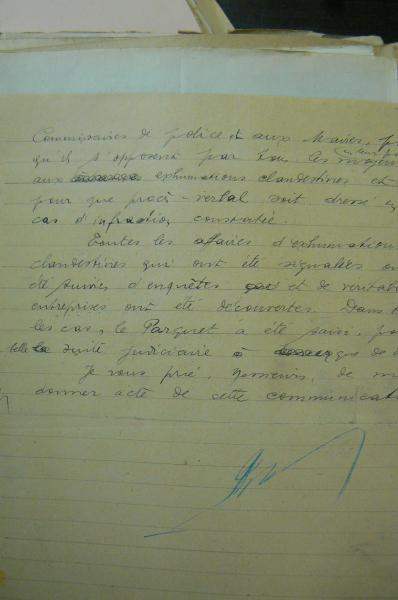 Commissaires de police et aux Maires, p
qu'ils s'opposent par tous les moyens
aux exhumations clandestines et
pour que procès-verbal soit dressé en
cas d'infraction constatée.
Toutes les affaires d'exhumations
clandestines qui ont été signalées on
été suivies d'enquêtes et de véritab
entreprises ont été découvertes. Dans t
les cas, le Parquet a été saisi, po
telle suite judiciaire que de d
Je vous prie, Messieurs, de m
donner acte de cette communicati